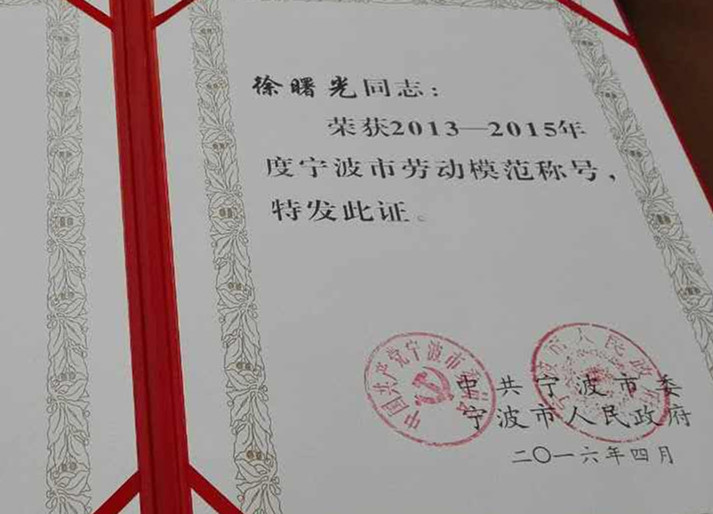 徐曙光同志：
荣获2013—2015年
度宁波市劳动模范称号，
特发此证。
中共宁波市委
宁波市人民政府
二〇一六年四月
中国共产党宁波市委员会
宁波市人民政府